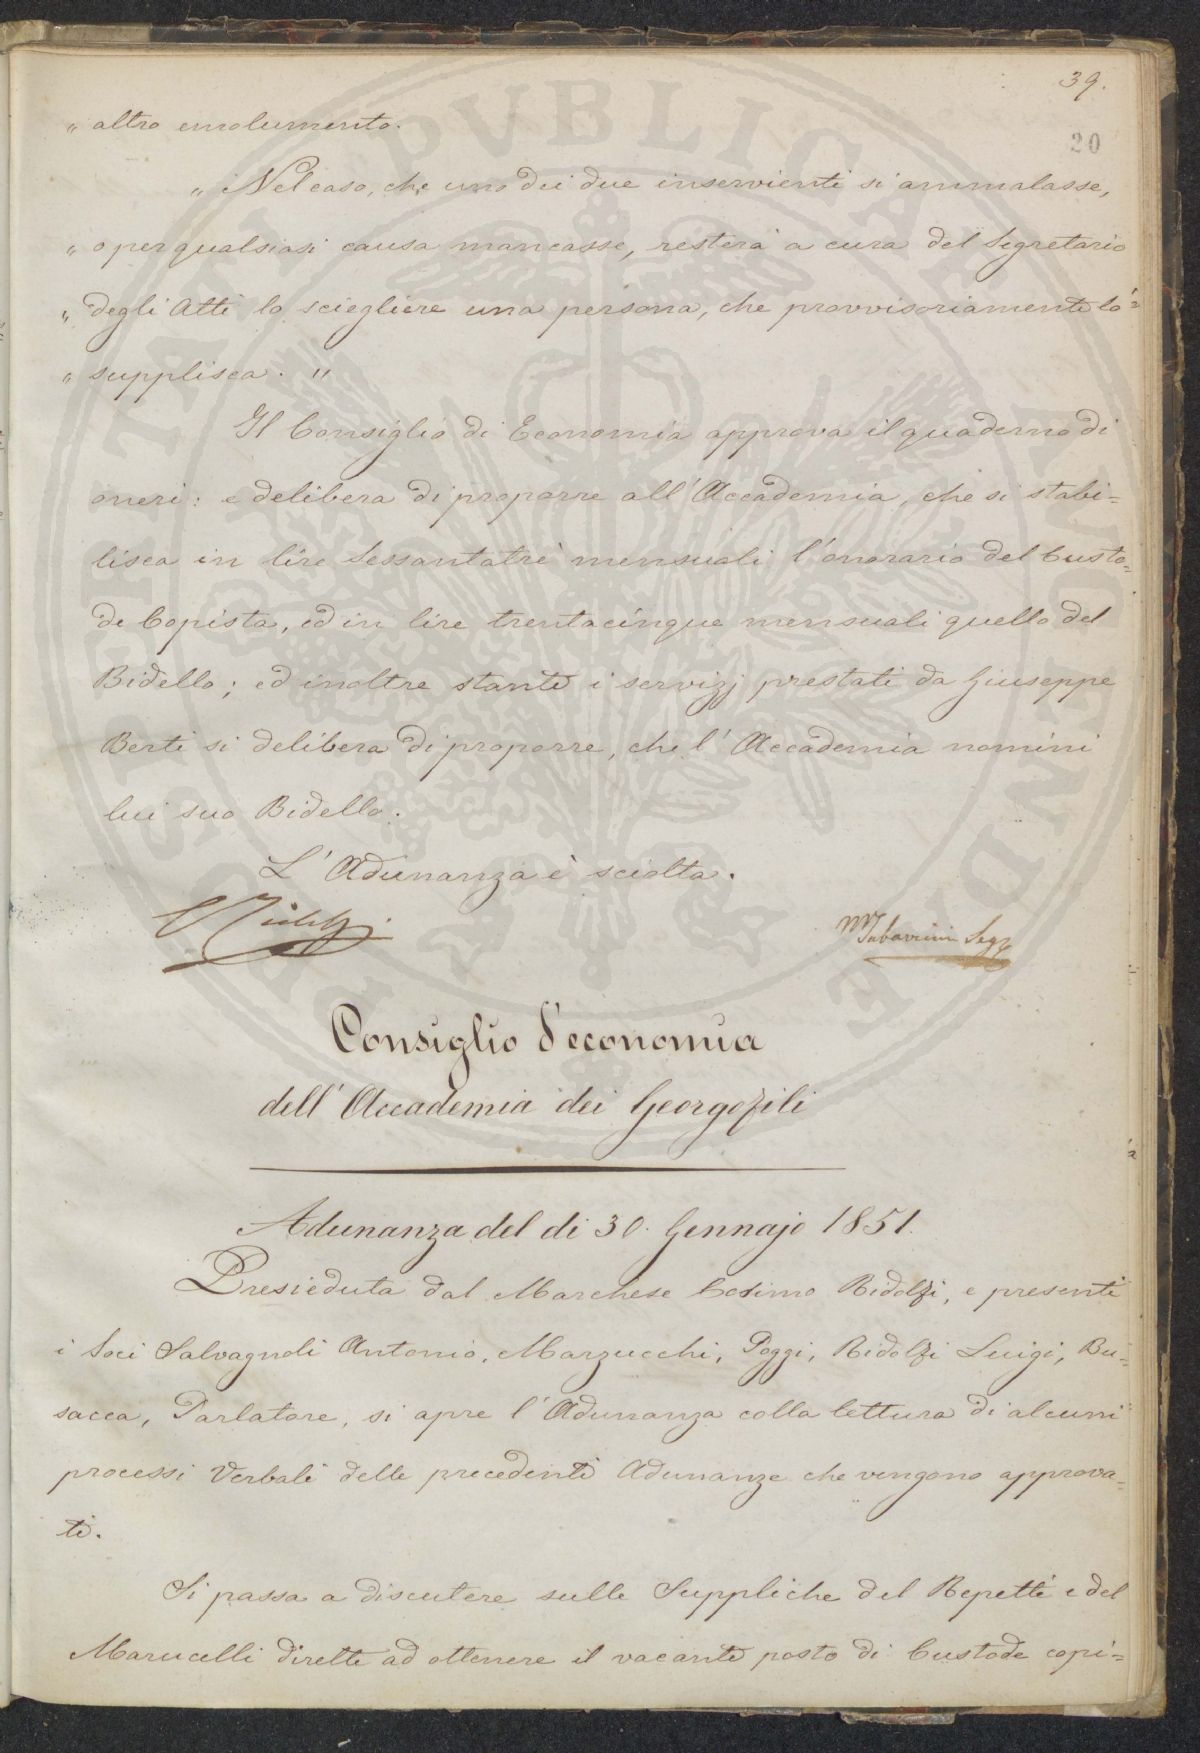 39.
20
„ altro emolumento.
„ Nel caso, che uno dei due inservienti si ammalasse,
„ o per qualsiasi causa mancasse, resterà a cura del Segretario
„ degli Atti lo sciegliere una persona, che provvisoriamente lo =
„ supplisca. „
Il Consiglio di Economia approva il quaderno di
oneri: e delibera di proporre all' Accademia, che si stabi=
lisca in lire Sessantatrè mensuali l'onorario del Custo=
de Copista, ed in lire trentacinque mensuali quello del
Bidello; ed inoltre stante i servizj prestati da Giuseppe
Berti si delibera di proporre, che l' Accademia nomini
lui suo Bidello.
L' Adunanza è sciolta.
C Ridolfi
M Tabarrini Seg.
Consiglio d'economia
dell' Accademia dei Georgofili
Adunanza del dì 30. Gennajo 1851.
Presieduta dal Marchese Cosimo Ridolfi, e presenti
i Soci Salvagnoli Antonio, Marzucchi, Poggi, Ridolfi Luigi, Bu=
sacca, Parlatore, si apre l' Adunanza colla lettura di alcuni
processi Verbali delle precedenti Adunanze che vengono approva=
ti.
Si passa a discutere sulle Suppliche del Repetti e del
Marucelli dirette ad ottenere il vacante posto di Custode copi=
PROSPERITATI PVBLICAE AVGENDAE